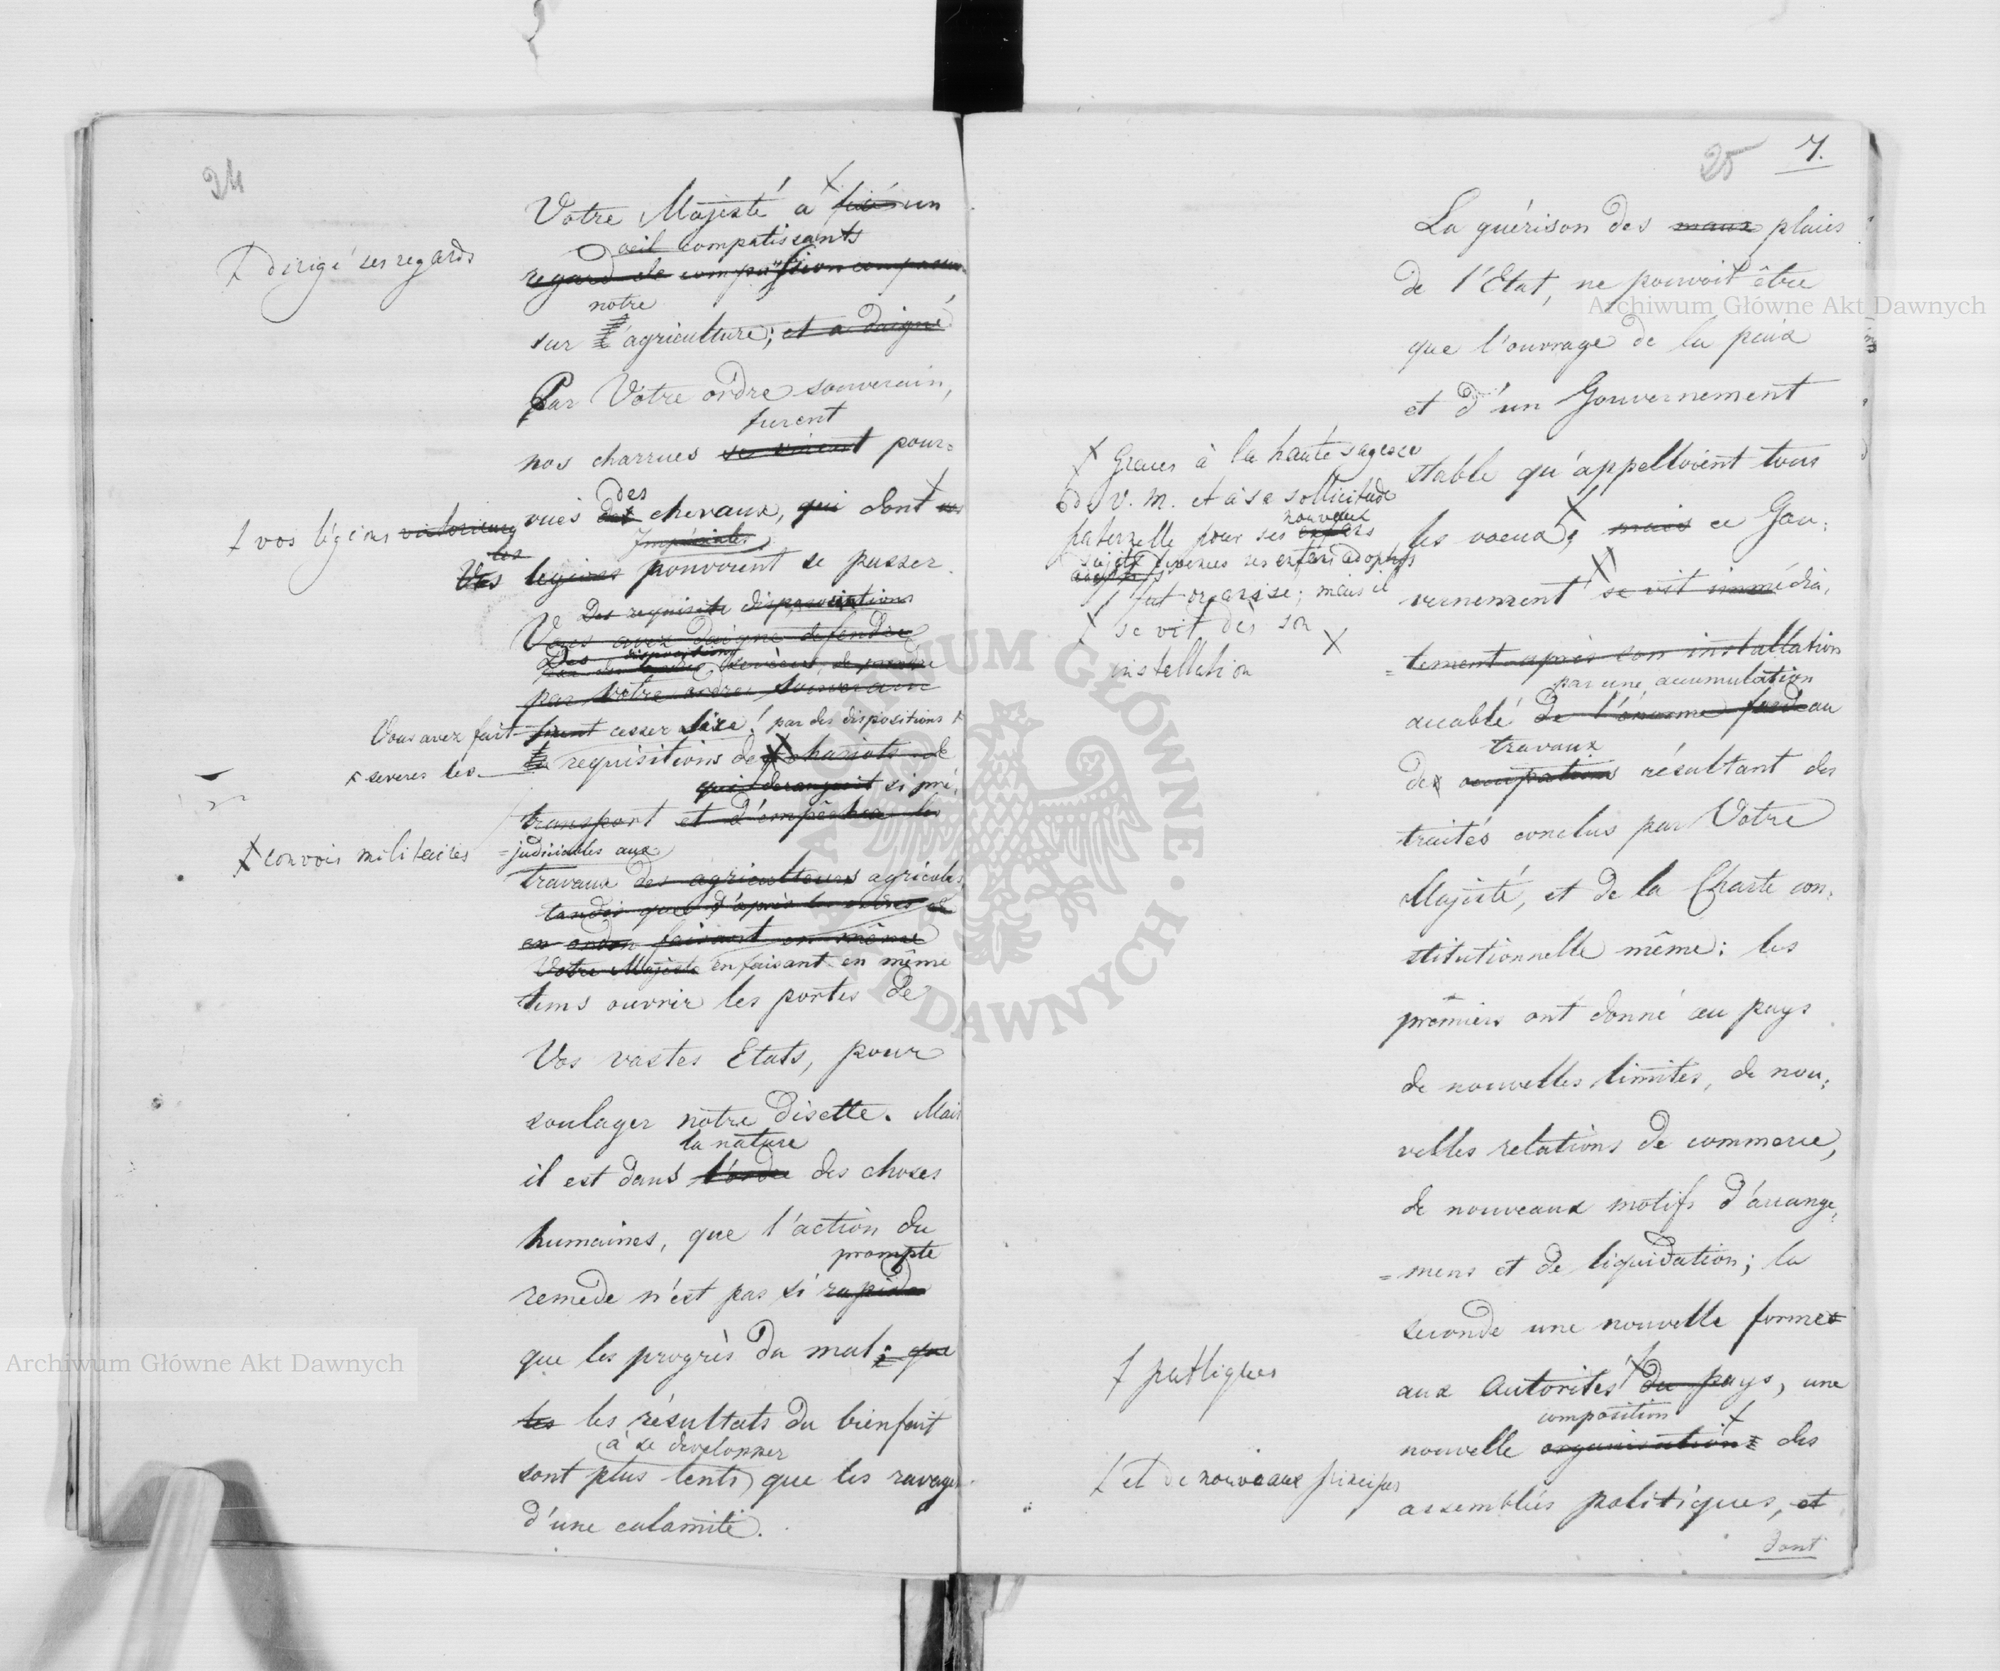 24
Votre Majesté a ✗ fixé un
oeil compatissants
✗ dirigé ses regards
regard de compassion
notre
sur agriculture; et a daigné
Par Votre ordre souverain,
furent
nos charrues se virent pour=
des
vues des chevaux, qui dont vos
✗ vos légions victorieuses
Impériales
les
Vos legions pouvoient se passer.
Vous avez daigné défendre
par Votre ordre souverain
Vous avez fait cesser par des dispositions ✗
✗ severes les
requisitions de chariots de
qui derangeoit si pré,
transport et d'empêcher les
✗ convois militaires
=judiciables aux
travaux des agriculteurs agricoles
tandis que d'après les ordres de
en ordon faisant en même
Votre Majesté en faisant en même
tems ouvrir les portes de
Vos vastes Etats, pour
soulager notre disette. Mais
la nature
il est dans l'ordre des choses
humaines, que l'action du
prompte
remede n'est pas si rapide
que les progrès du mal; que
les les résultats du bienfait
à se developper
sont plus lents que les ravages
d'une calamité.
25 7.
La guérison des maux plaies
de l'Etat, ne pouvoit être
que l'ouvrage de la paix
et d'un Gouvernement
stable qu'appelloient tous
les voeux; mais ce Gou,
✗ Graces à la haute sagesse
de V. M. et à sa sollicitude
nouveaux
paternelle pour ses enfans
sujets devenus ses enfans adoptifs
fut organisé; mais il
✗ se vit dès son
installation
vernement se vit immédia,
=tement après son installation
par une accumulation
accablé de l'énorme fardeau
travaux
de occupations résultant des
traités conclus par Votre
Majesté, et de la Charte con,
stitutionnelle même: les
prémiers ont donné au pays
de nouvelles limites, de nou,
velles relations de commerce,
de nouveaux motifs d'arrange,
=mens et de liquidation; la
seconde une nouvelle forme
✗ publiques
aux Autorités ✗ du pays, une
composition ✗
nouvelle organisation des
✗ et de nouveaux principes
assemblées politiques, et
dont
Archiwum Główne Akt Dawnych
Archiwum Główne Akt Dawnych
ARCHIWUM GŁÓWNE AKT DAWNYCH